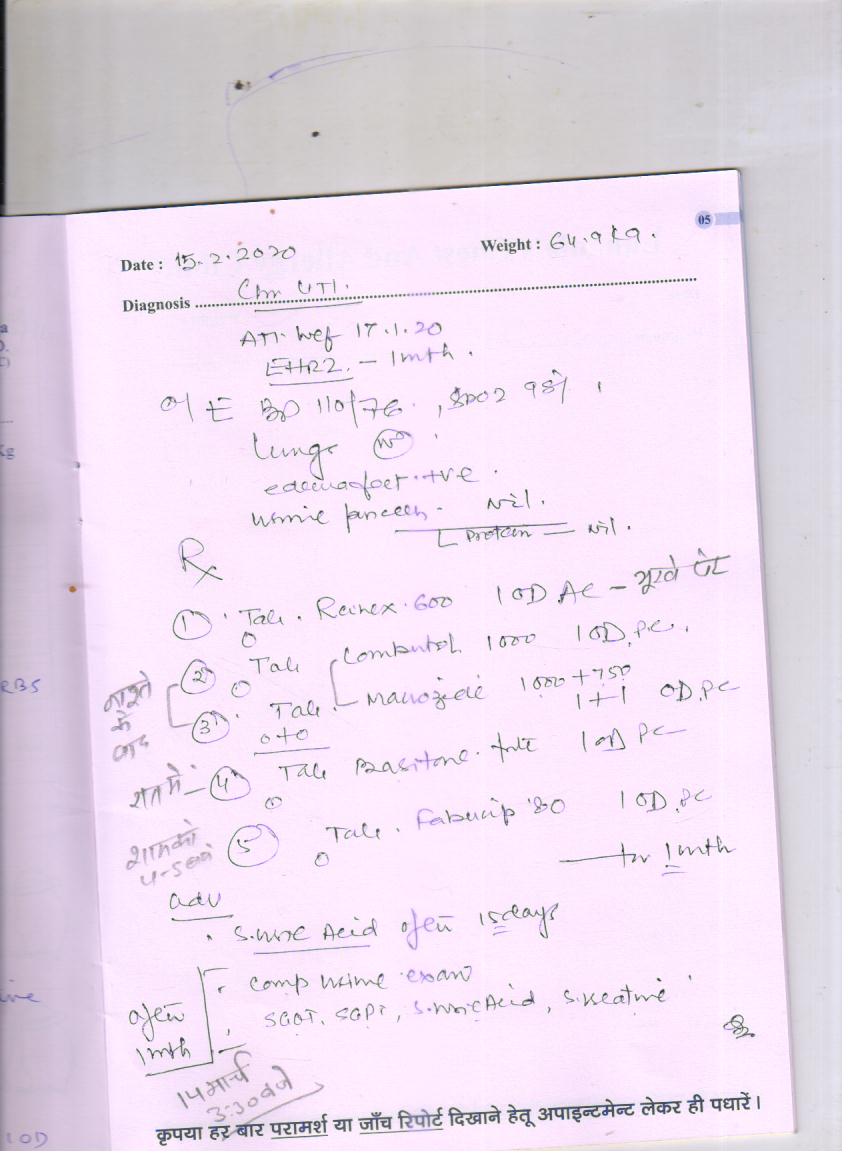 05
Date : 15.2.2020 Weight : 64.9 kg.
Diagnosis Chr UTI.
ATT. wef 17.1.20
EHRZ. - 1mth.
O/E BP 110/76, SPO2 98%
Lungs
edema feet +ve.
Nil.
Protein — Nil.
Rx
① Tab. 600 1 OD AC - भूखे पेट
② Tab Combutol 1000 1 OD, PC.
③ Tab. 1000+750
1+1 OD, PC
नाश्ते के बाद
रात में - ④ Tab forte 1 OD PC
शाम को 4-5 बजे ⑤ Tab. 80 1 OD, PC
— for 1mth
adv
S. uric Acid after 15 days
after 1mth
Comp urine exam
SGOT, SGPT, S. uric Acid,
14 मार्च
3:30 बजे
कृपया हर बार परामर्श या जाँच रिपोर्ट दिखाने हेतू अपाइन्टमेन्ट लेकर ही पधारें।
RBS
10D